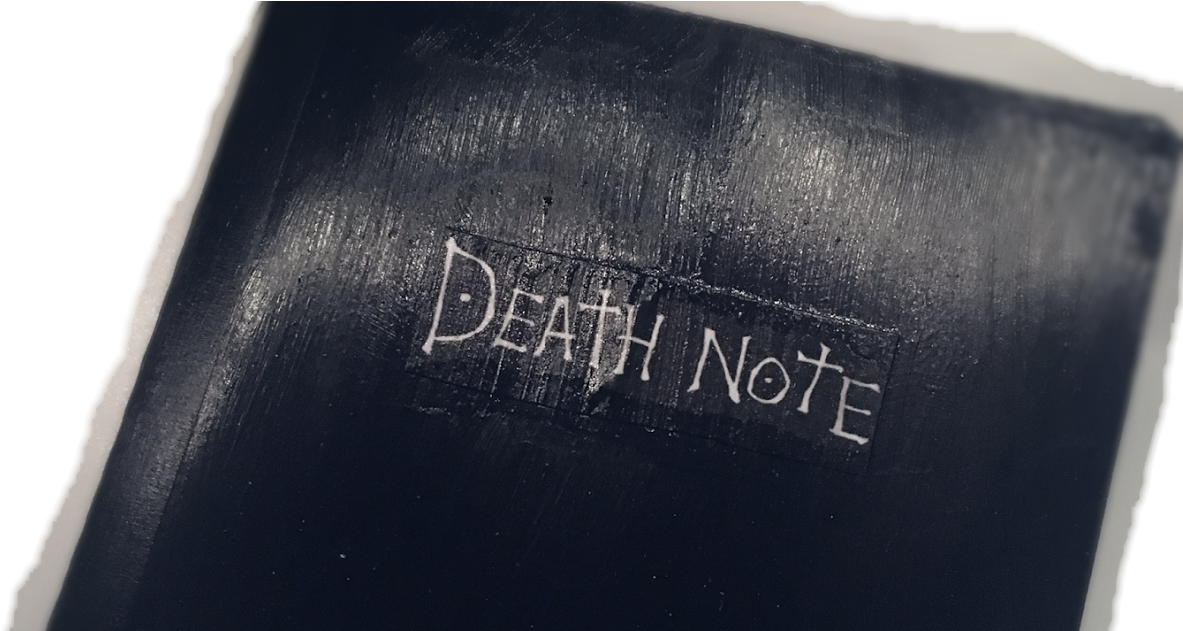 DEATH NOTE